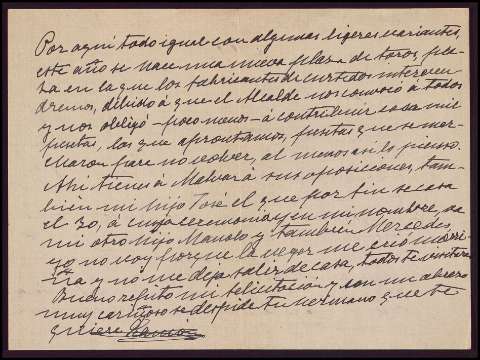 Por aquí todo igual con algunas ligeras variantes,
este año se hace una nueva plaza de toros, pla-
za en la que los fabricantes de curtidos interven
dremos, debido á que el Alcalde nos convocó á todos
y nos obligó - poco menos - á contribuir con mil
pesetas, las que aprontamos, pesetas que se mar-
charon para no volver, al menos así lo pienso.
Ahí tienes á Malvar á sus oposiciones, tam-
bien mi hijo José el que por fin se casa
el 30, á cuya ceremonia y en mi nombre, va
mi otro hijo Manolo y tambien Mercedes,
yo no voy porque la vejez me crió
ña y no me deja salir de casa, todos te
Bueno repito mi felicitación y con un abrazo
muy cariñoso se despide tu hermano que te
quiere Ramón